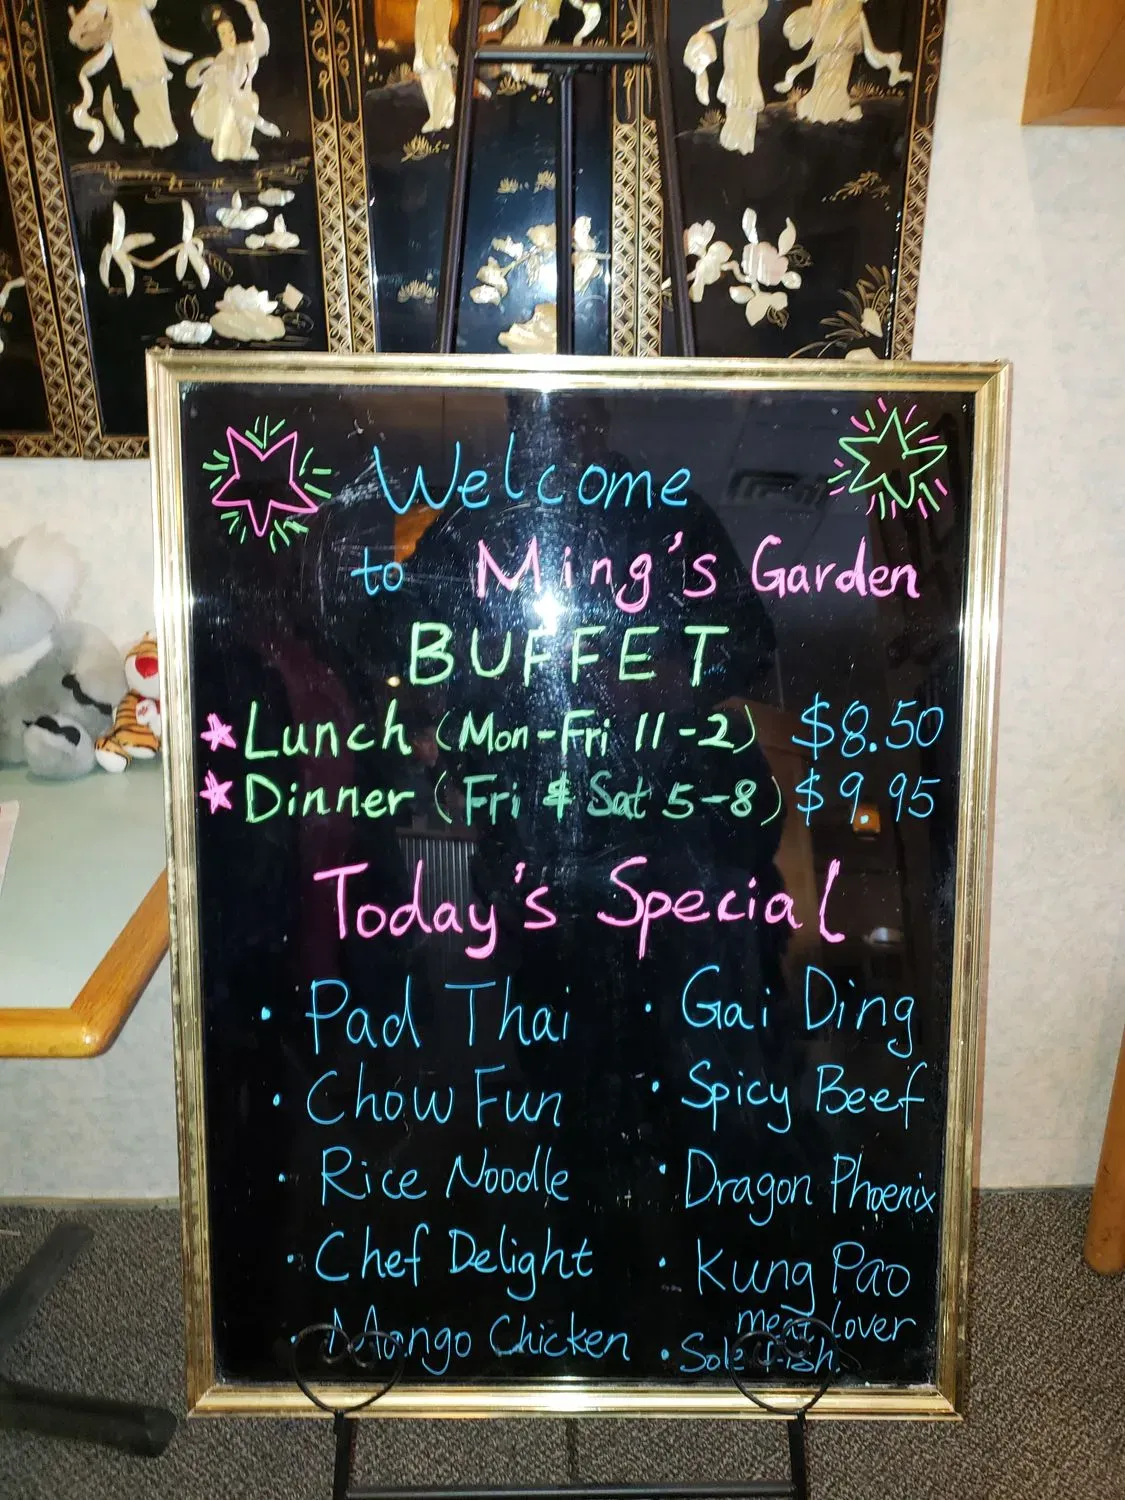 Welcome
to Ming's Garden
BUFFET
Lunch (Mon-Fri 11-2) $8.50
Dinner (Fri & Sat 5-8) $9.95
Today's Special
· Pad Thai
· Chow Fun
· Rice Noodle
· Chef Delight
· Mango Chicken
· Gai Ding
· Spicy Beef
· Dragon Phoenix
· Kung Pao
meat lover
· Sole fish.